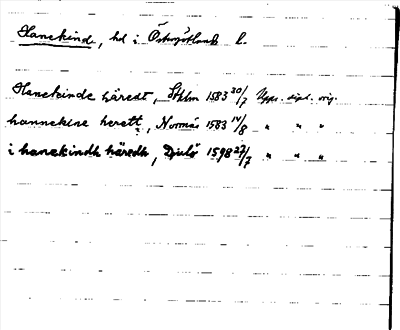 Hanekind, hd i Östergötlands l.
Hanekinde häredt, Sthlm 1583 30/7 Upps. dipl. orig.
hannekine herett, Norrnäs 1583 14/8 " " "
i hanekindh häredh, Djulö 1598 27/7 " " "